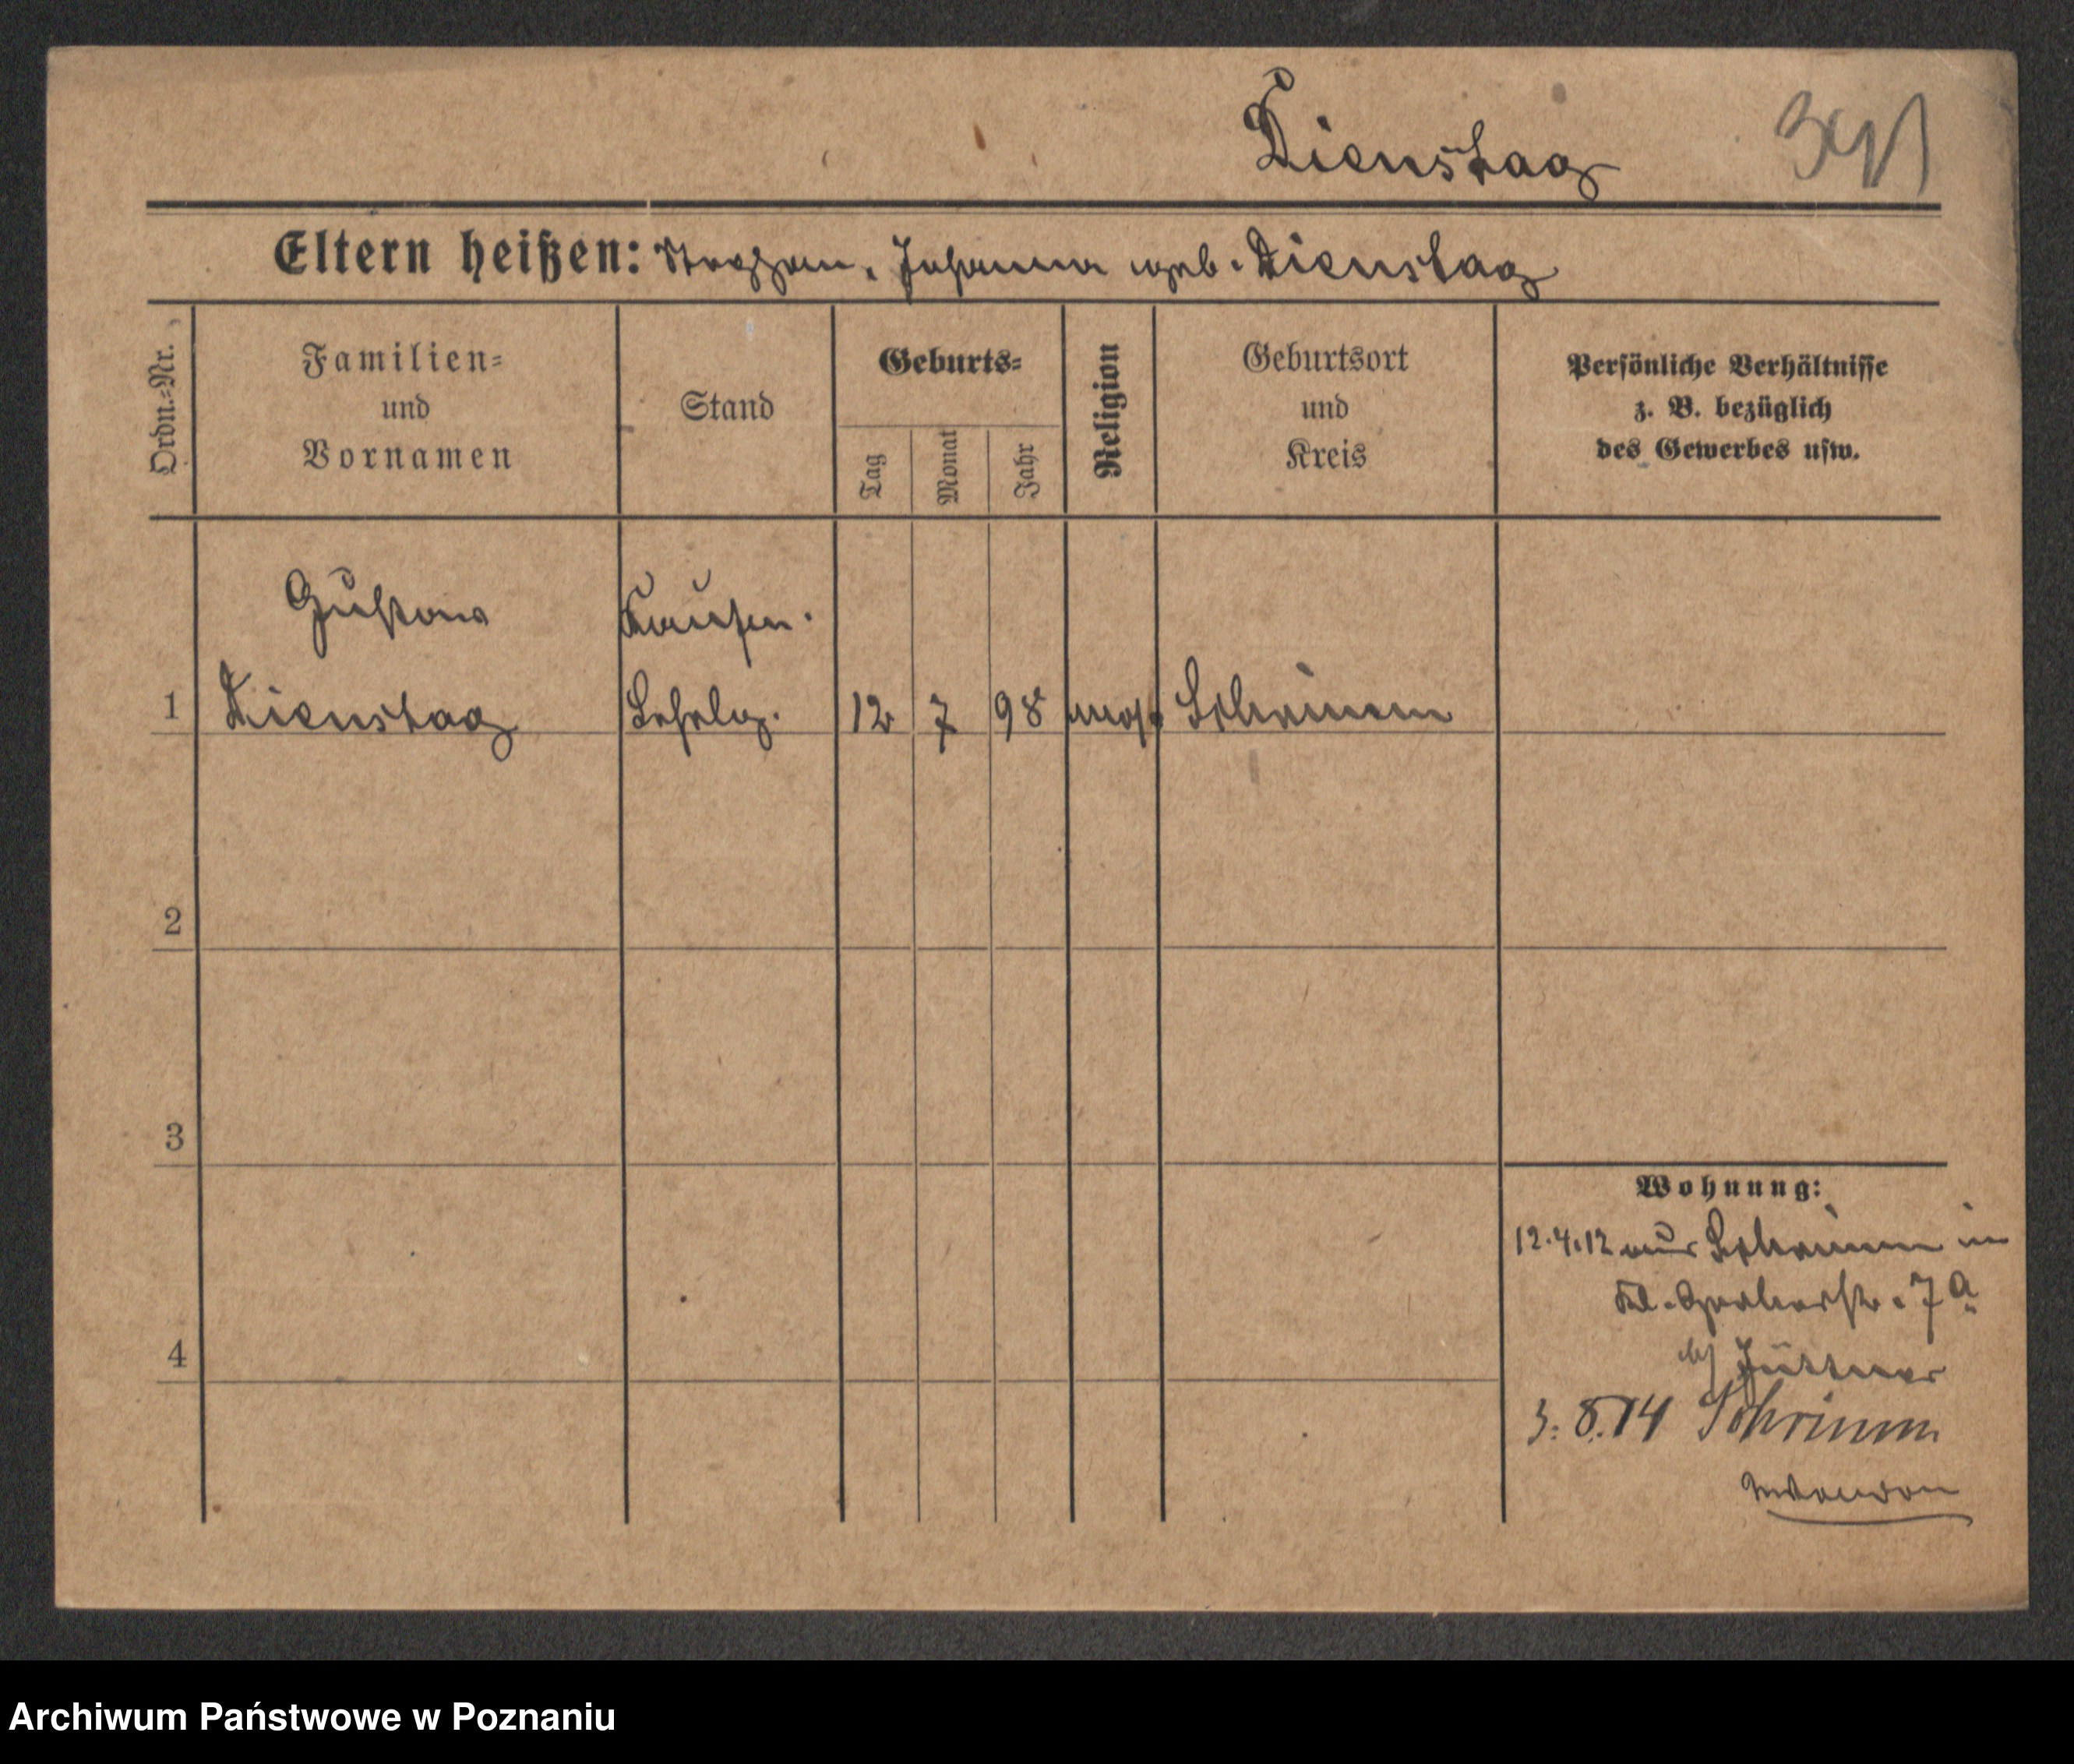 Dienstag
Eltern heißen: Stephan, Johanna geb. Dienstag
Ordn.-Nr.
Familien-
und
Vornamen
Stand
Geburts-
Tag
Monat
Jahr
Religion
Geburtsort
und
Kreis
Persönliche Verhältnisse
z. B. bezüglich
des Gewerbes usw.
Gustav
Dienstag
Kaufm.
Lehrlg.
1
12
7
98
mos.
Schrimm
2
3
4
Wohnung:
12.4.12 aus Schrimm in
Kl. Gerberstr. 7a
b/ Jüttner
3.8.14 Schrimm
Archiwum Państwowe w Poznaniu